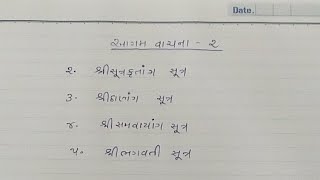 Date.
આગમ વાચના - ૨
૨. શ્રીસૂત્રકૃતાંગ સૂત્ર
૩. શ્રીઠાણાંગ સૂત્ર
૪. શ્રીસમવાયાંગ સૂત્ર
૫. શ્રીભગવતી સૂત્ર